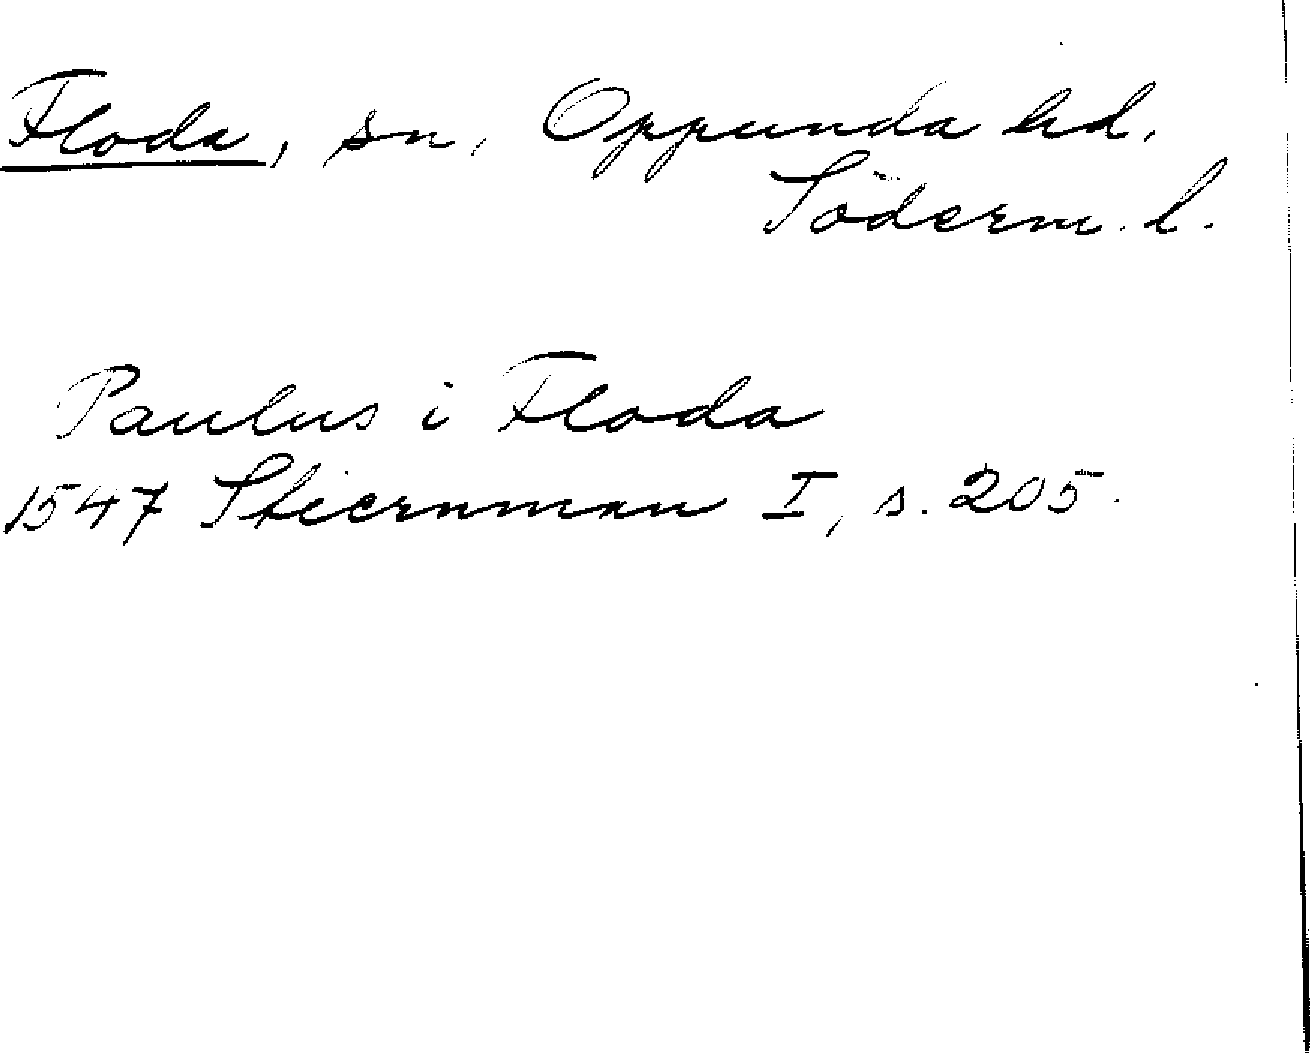 Floda, sn, Oppunda hd,
Söderm. l.
Paulus i Floda
1547 Stiernman I, s. 205.